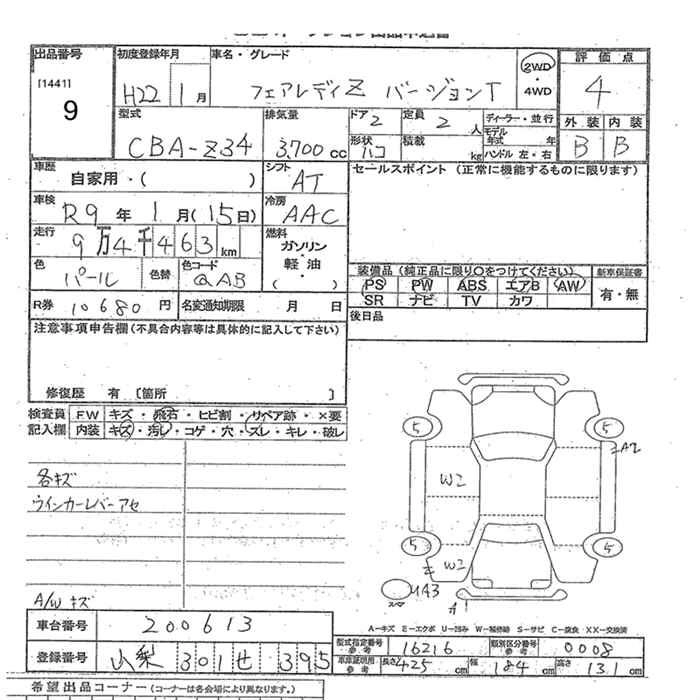 出品番号
[1441]
9
初度登録年月
H22 1月
車名・グレード
フェアレディZ バージョンT
2WD
・
4WD
評価点
4
型式
CBA-Z34
排気量
3,700cc
ドア
2
定員
2人
形状
ハコ
積載
kg
ディーラー・並行
モデル年式 年
ハンドル 左・右
外装 内装
B B
車歴
自家用・( )
シフト
AT
セールスポイント (正常に機能するものに限ります)
車検
R9年 1月(15日)
冷房
AAC
走行
9万4千463km
燃料
ガソリン
・
軽油
( )
色
パール
色替
色コード
QAB
装備品 (純正品に限り○をつけてください)
新車保証書
PS PW ABS エアB AW
SR ナビ TV カワ
有・無
R券 10680円
名変通知期限 月 日
後日品
注意事項申告欄 (不具合内容等は具体的に記入して下さい)
修復歴 有 [箇所 ]
検査員記入欄
FW キズ・飛石・ヒビ割・リペア跡・×要
内装 キズ・汚レ・コゲ・穴・ズレ・キレ・破レ
各キズ
ウインカーレバーアセ
A/Wキズ
5
5
A2
W2
5
5
W2
UA3
A1
A-キズ E-エクボ U-凹み W-補修跡 S-サビ C-腐食 XX-交換済
車台番号 200613
登録番号 山梨 301 せ 395
型式指定番号 参考 16216
類別区分番号 参考 0008
車庫証明用 参考 長さ 425cm 幅 184cm 高さ 131cm
希望出品コーナー (コーナーは各会場により異なります。)